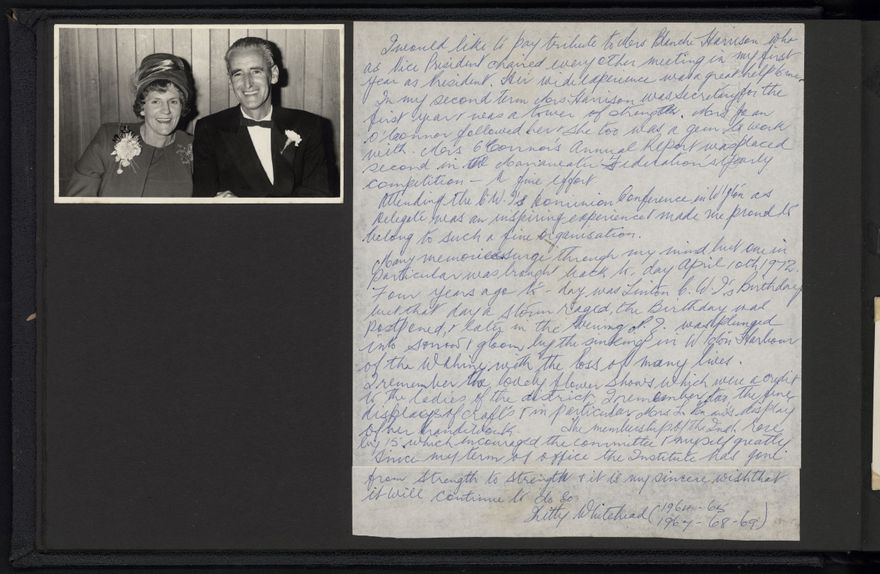 I would like to pay tribute to Mrs Blanche Harrison who
as Vice President chaired every other meeting in my first
year as President. Her wide experience was a great help to me.
In my second term Mrs Harrison was secretary for the
first year & was a tower of strength. Mrs Jean
O'Connor followed her & she too was a gem to work
with. Mrs O'Connor's Annual Report was placed
second in the Manawatu Federation's yearly
competition — A fine effort
Attending the C.W.I's Dominion Conference in W'gton as
Delegate was an inspiring experience & made me proud to
belong to such a fine organisation.
Many memories surge through my mind but one in
particular was brought back to-day April 10th, 1972.
Four years ago to-day was Linton C.W.I's Birthday
but that day a storm raged, the Birthday was
postponed, & later in the evening N.Z. was plunged
into sorrow & gloom, by the sinking in W'gton Harbour
of the Wahine, with the loss of many lives.
I remember the lovely flower shows which were a credit
to the ladies of the district. I remember too, the fine
displays of craft & in particular Mrs display
of her handiwork. The membership of the Inst. rose
by 15 which encouraged the committee & myself greatly
Since my term of office the Institute has gone
from strength to strength & it is my sincere wish that
it will continue to do so.
Kitty Whitehead (1964-65
1967-68-69)